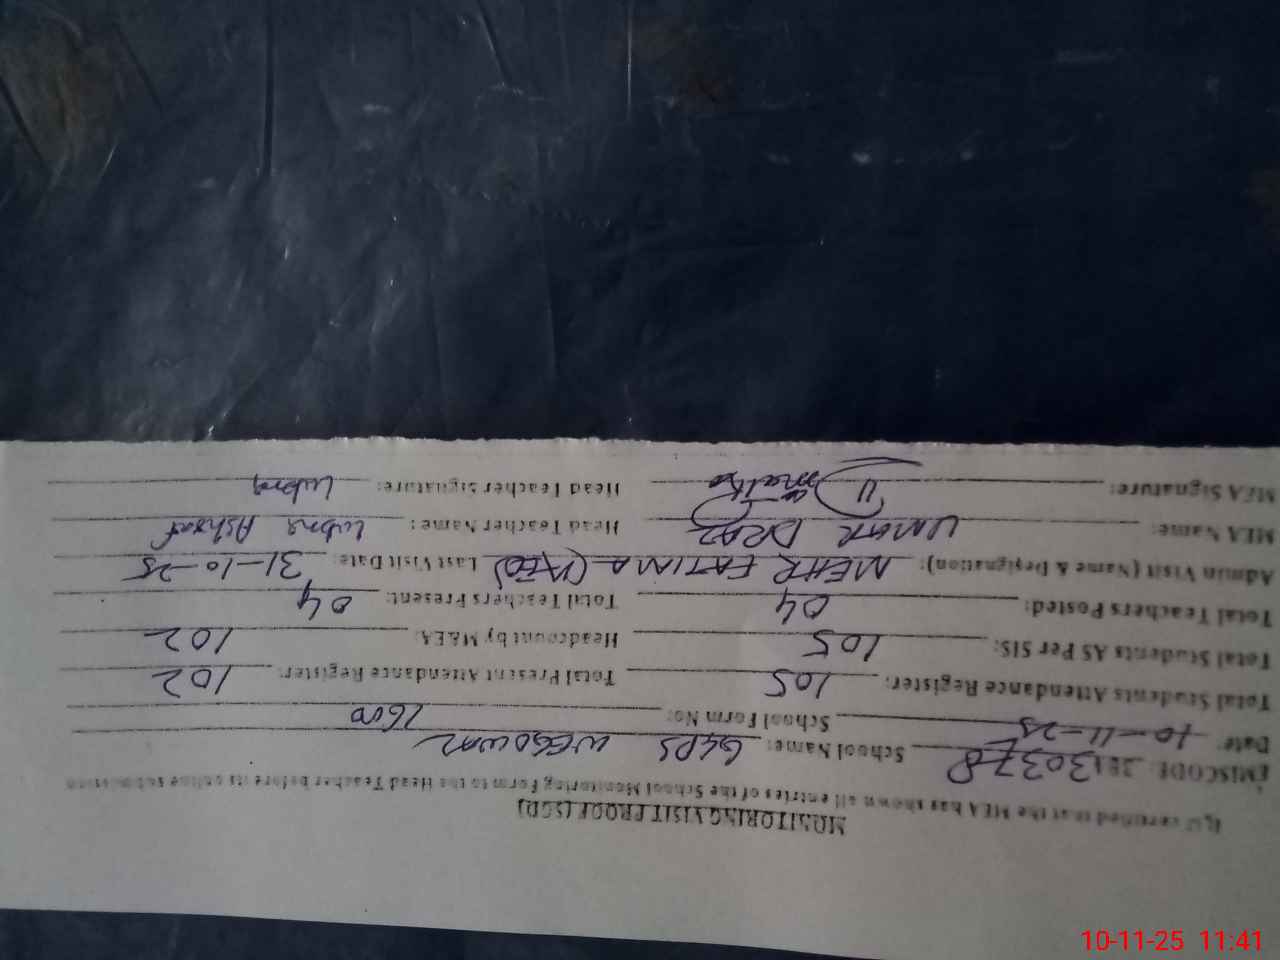 MONITORING VISIT PROOF (SED)
It is certified that the MEA has shown all entries of the School Monitoring Form to the Head Teacher before its online submission
EMISCODE: 38130378 School Name: GGPS
Date: 10-11-25 School Form No: 7600
Total Students Attendance Register: 105 Total Present Attendance Register: 102
Total Students AS Per SIS: 105 Headcount by M&EA: 102
Total Teachers Posted: 04 Total Teachers Present: 04
Admin Visit (Name & Designation): MEHR FATIMA (AEO) Last Visit Date: 31-10-25
MEA Name: UMAR DRAZ Head Teacher Name: Lubna Ashraf
MEA Signature: Head Teacher Signature: Lubna
10-11-25 11:41